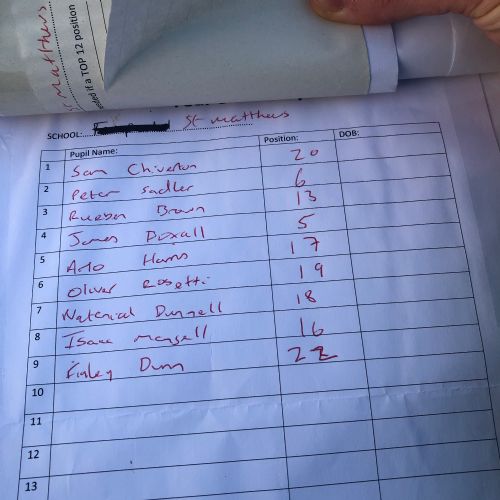 St Matthews
needed if a TOP 12 position
SCHOOL: St Matthews
Pupil Name: Position: DOB:
1 Sam Chiverton 20
2 Peter Sadler 6
3 Rueben Brown 13
4 James Doxall 5
5 Arlo Harris 17
6 Oliver Rosetti 19
7 Natenial Dunnell 18
8 Isaac Mansell 16
9 Finley Dunn 22
10
11
12
13